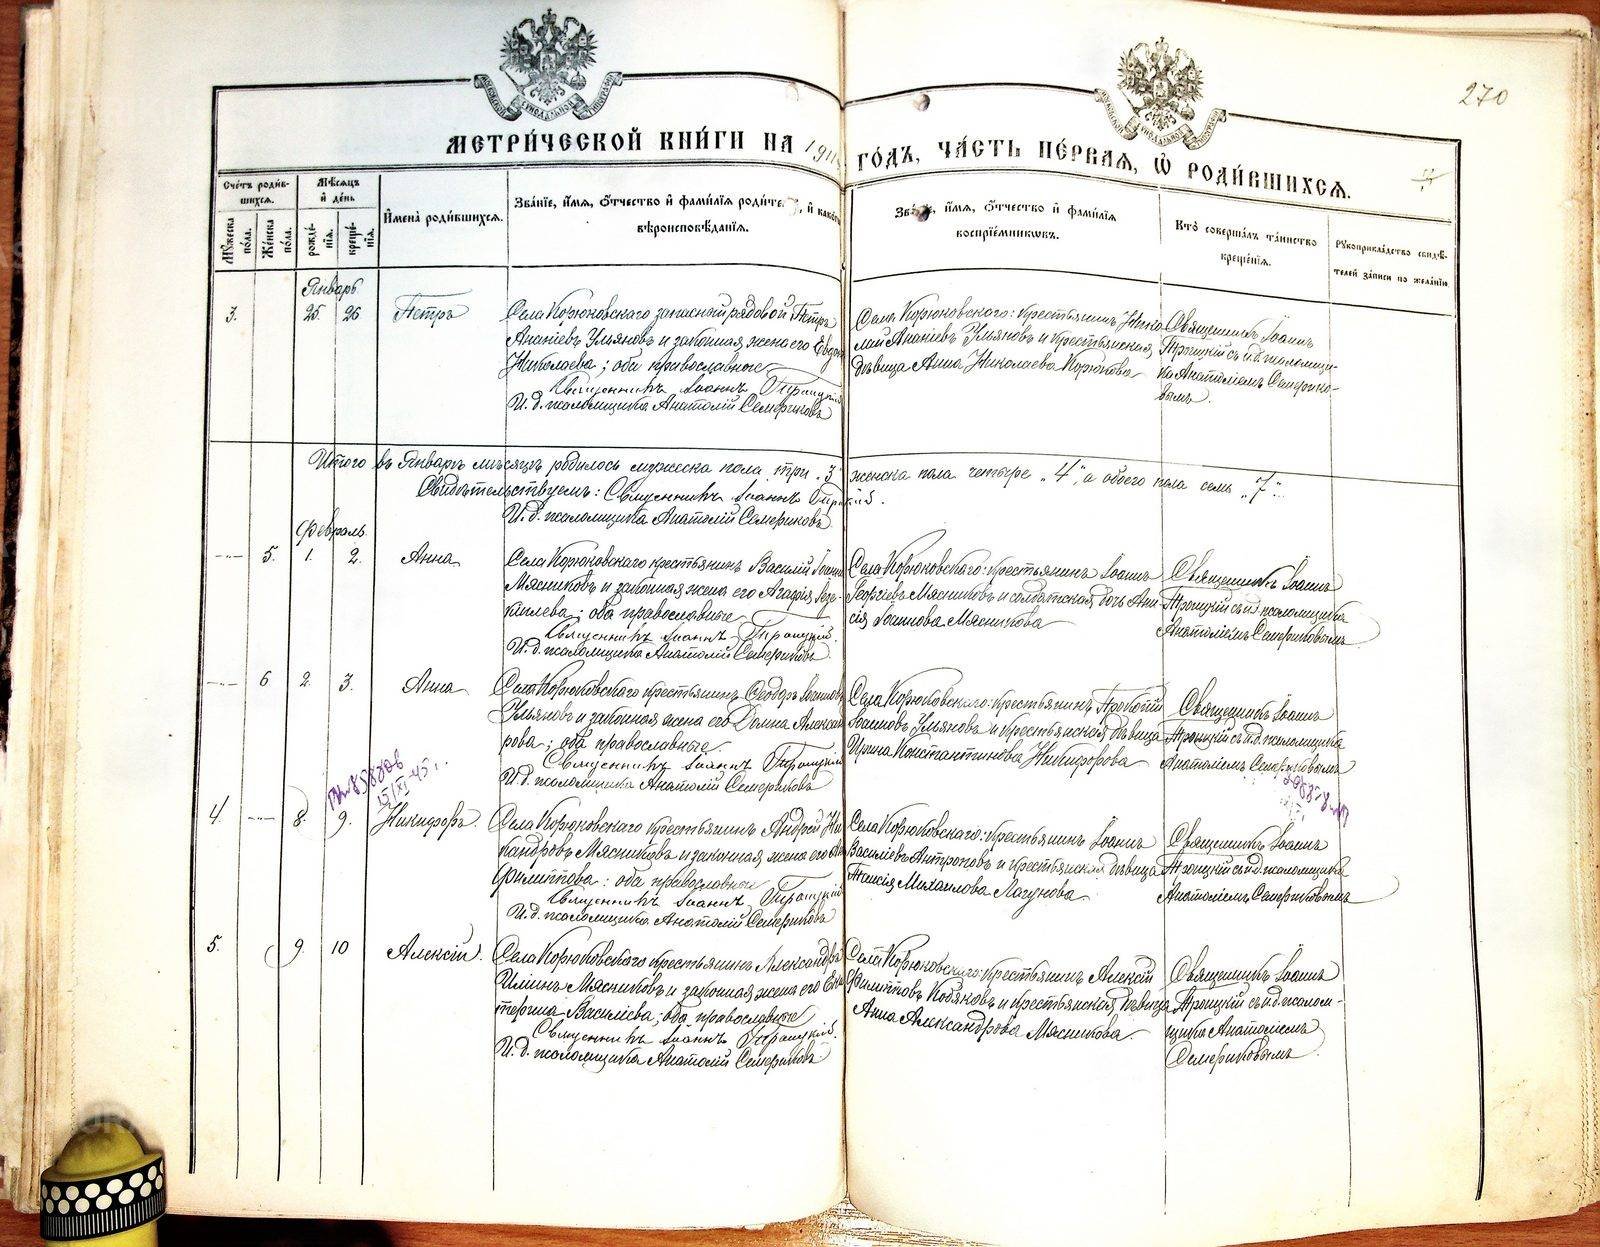 270
МЕТРИ́ЧЕСКОЙ КНИ́ГИ НА 191 ГО́ДЪ, ЧА́СТЬ ПЕ́РВАЯ, Ѡ РОДИ́ВШИХСЯ.
Сче́тъ роди́в-
шихся.
Му́жеска по́ла.
Же́нска по́ла.
Мѣ́сяцъ
и де́нь
рожде́нія.
креще́нія.
Имена́ роди́вшихся.
Зва́ніе, и́мя, о́тчество и фами́лія роди́те и како
вѣроисповѣ́данія.
Зва е, и́мя, о́тчество и фами́лія
воспріе́мниковъ.
Кто̀ соверша́лъ та́инство
креще́нія.
Рукоприкла́дство свидѣ́-
телей за́писи по жела́нію
Январь
3. 25. 26 Петръ
Села Корюковскаго запасный рядовой Петръ
Ананіевъ Ульяновъ и законная жена его Евдок
Николаева; оба православные
Священникъ Іоаннъ Троицкій
И. д. псаломщика Анатолій Семериковъ
Села Корюковскаго: крестьянинъ Нико
лай Ананіевъ Ульяновъ и крестьянская
дѣвица Анна Николаева Корюкова
Священникъ Іоаннъ
Троицкій съ и.д. псаломщи-
ка Анатоліемъ Семерико-
вымъ.
Итого въ Январѣ мѣсяцѣ родилось мужеска пола три „3" женска пола четыре „4", а обоего пола семь „7".
Свидѣтельствуемъ: Священникъ Іоаннъ Троицкій.
И. д. псаломщика Анатолій Семериковъ
Февраль
5. 1. 2. Анна
Села Корюковскаго крестьянинъ Василій Іоанн
Мясниковъ и законная жена его Агафія Іезе-
кіилева; оба православные
Священникъ Іоаннъ Троицкій.
И. д. псаломщика Анатолій Семериковъ
Села Корюковскаго: крестьянинъ Іоаннъ
Георгіевъ Мясниковъ и солдатская дочь Ани-
сія Іоаннова Мясникова
Священникъ Іоаннъ
Троицкій съ и.д. псаломщика
Анатоліемъ Семериковымъ
6 2. 3. Анна
Села Корюковскаго крестьянинъ Ѳеодоръ Іоанновъ
Ульяновъ и законная жена его Домна Алексан
рова; оба православные.
Священникъ Іоаннъ Троицкій
И. д. псаломщика Анатолій Семериковъ
Села Корюковскаго: крестьянинъ Прокопій
Іоанновъ Ульяновъ и крестьянская дѣвица
Ирина Константинова Никифорова
Священникъ Іоаннъ
Троицкій съ и.д. псаломщика
Анатоліемъ Семериковымъ
4. 8. 9. Никифоръ.
Села Корюковскаго крестьянинъ Андрей Ни
кандровъ Мясниковъ и законная жена его
Филиппова: оба православные
Священникъ Іоаннъ Троицкій
И. д. псаломщика Анатолій Семериковъ
Села Корюковскаго: крестьянинъ Іоаннъ
Василіевъ Антроповъ и крестьянская дѣвица
Таисія Михаилова Лагунова
Священникъ Іоаннъ
Троицкій съ и.д. псаломщика
Анатоліемъ Семериковымъ
5. 9. 10 Алексій.
Села Корюковскаго крестьянинъ Александръ
Илиинъ Мясниковъ и законная жена его Ека
терина Василіева; оба православные
Священникъ Іоаннъ Троицкій.
И. д. псаломщика Анатолій Семериковъ
Села Корюковскаго: крестьянинъ Алексій
Филипповъ Кодяковъ и крестьянская дѣвица
Анна Александрова Мясникова.
Священникъ Іоаннъ
Троицкій съ и.д. псалом-
щика Анатоліемъ
Семериковымъ